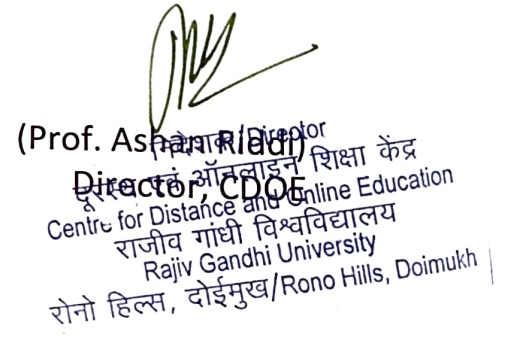 (Prof. Ashan Riddi)
Director, CDOE
निदेशक/Director
दूरस्थ एवं ऑनलाइन शिक्षा केंद्र
Centre for Distance and Online Education
राजीव गांधी विश्वविद्यालय
Rajiv Gandhi University
रोनो हिल्स, दोईमुख/Rono Hills, Doimukh